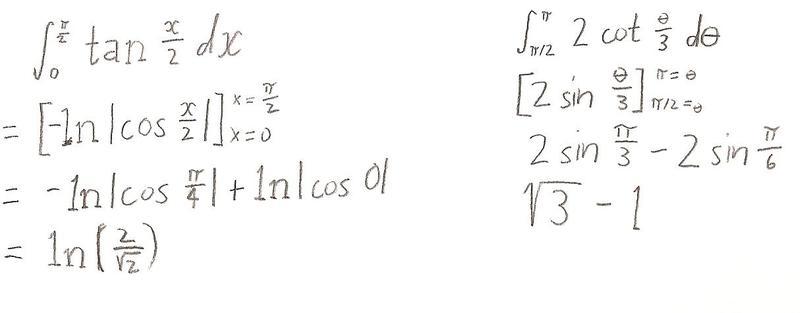 ∫₀^{π/2} tan x/2 dx
= [-ln|cos x/2|]_{x=0}^{x=π/2}
= -ln|cos π/4| + ln|cos 0|
= ln(2/√2)
∫_{π/2}^{π} 2 cot θ/3 dθ
[2 sin θ/3]_{π/2=θ}^{π=θ}
2 sin π/3 - 2 sin π/6
√3 - 1